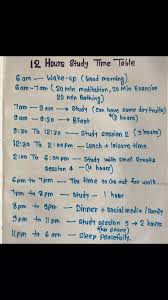 12 Hours Study Time Table
6 am — Wake-up (Good morning)
6am-7am (20 Min meditation, 20 Min Exercise
20 Min Bathing)
7am — 9am — Study (can have some dry fruits)
9am — 9:30 — B'fast
9:30 To 12:30 — Study session 2 (3 hours)
12:30 To 2:00pm — Lunch + leisure time
2:00pm To 6:00pm — Study with small breaks
session (4 hours)
6pm to 7pm — Tea time or go out for walk...
7pm to 8pm — Study 1 hour
8pm to 9pm — Dinner + social media / family
9pm to 11pm — study session 5 → 2 hours
11pm to 6am — Sleep Peacefully.